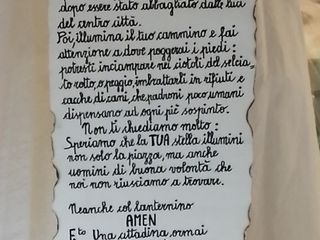 dopo essere stato abbagliato dalle luci
del centro città.
Poi illumina il tuo cammino e fai
attenzione a dove poggerai i piedi:
potresti inciampare nei ciotoli del selcia-
to rotto, o peggio, imbrattarti in rifiuti e
cacche di cani, che padroni poco umani
dispensano ad ogni piè sospinto.
Non ti chiediamo molto:
Speriamo che la TUA stella illumini
non solo la piazza, ma anche
uomini di buona volontà che
noi non riusciamo a trovare.
Neanche col lanternino
AMEN
F.to Una cittadina, ormai